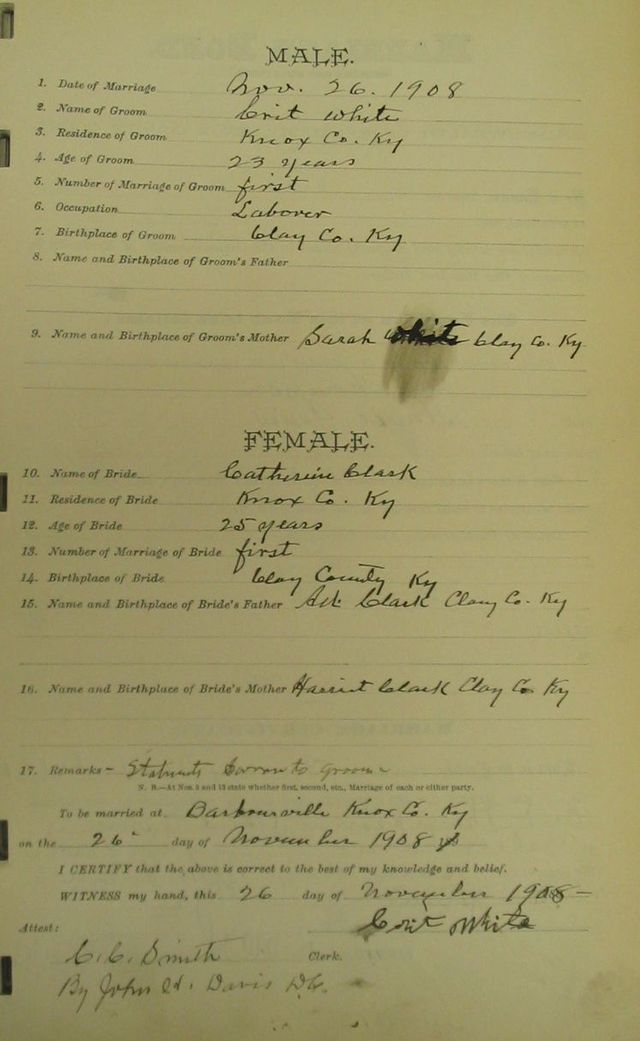 MALE.
1. Date of Marriage Nov. 26. 1908
2. Name of Groom Crit White
3. Residence of Groom Knox Co. Ky
4. Age of Groom 23 years
5. Number of Marriage of Groom first
6. Occupation Laborer
7. Birthplace of Groom Clay Co. Ky
8. Name and Birthplace of Groom's Father
9. Name and Birthplace of Groom's Mother Sarah White Clay Co. Ky
FEMALE.
10. Name of Bride Catherine Clark
11. Residence of Bride Knox Co. Ky
12. Age of Bride 25 years
13. Number of Marriage of Bride first
14. Birthplace of Bride Clay County Ky
15. Name and Birthplace of Bride's Father Clark Clay Co. Ky
16. Name and Birthplace of Bride's Mother Harriet Clark Clay Co Ky
17. Remarks - groom
N. B.—At Nos. 5 and 13 state whether first, second, etc., Marriage of each or either party.
To be married at Barbourville Knox Co. Ky
on the 26 day of November 1908
I CERTIFY that the above is correct to the best of my knowledge and belief.
WITNESS my hand, this 26 day of November 1908
Attest: Crit White
C. C. Smith Clerk.
By John H. Davis D.C.